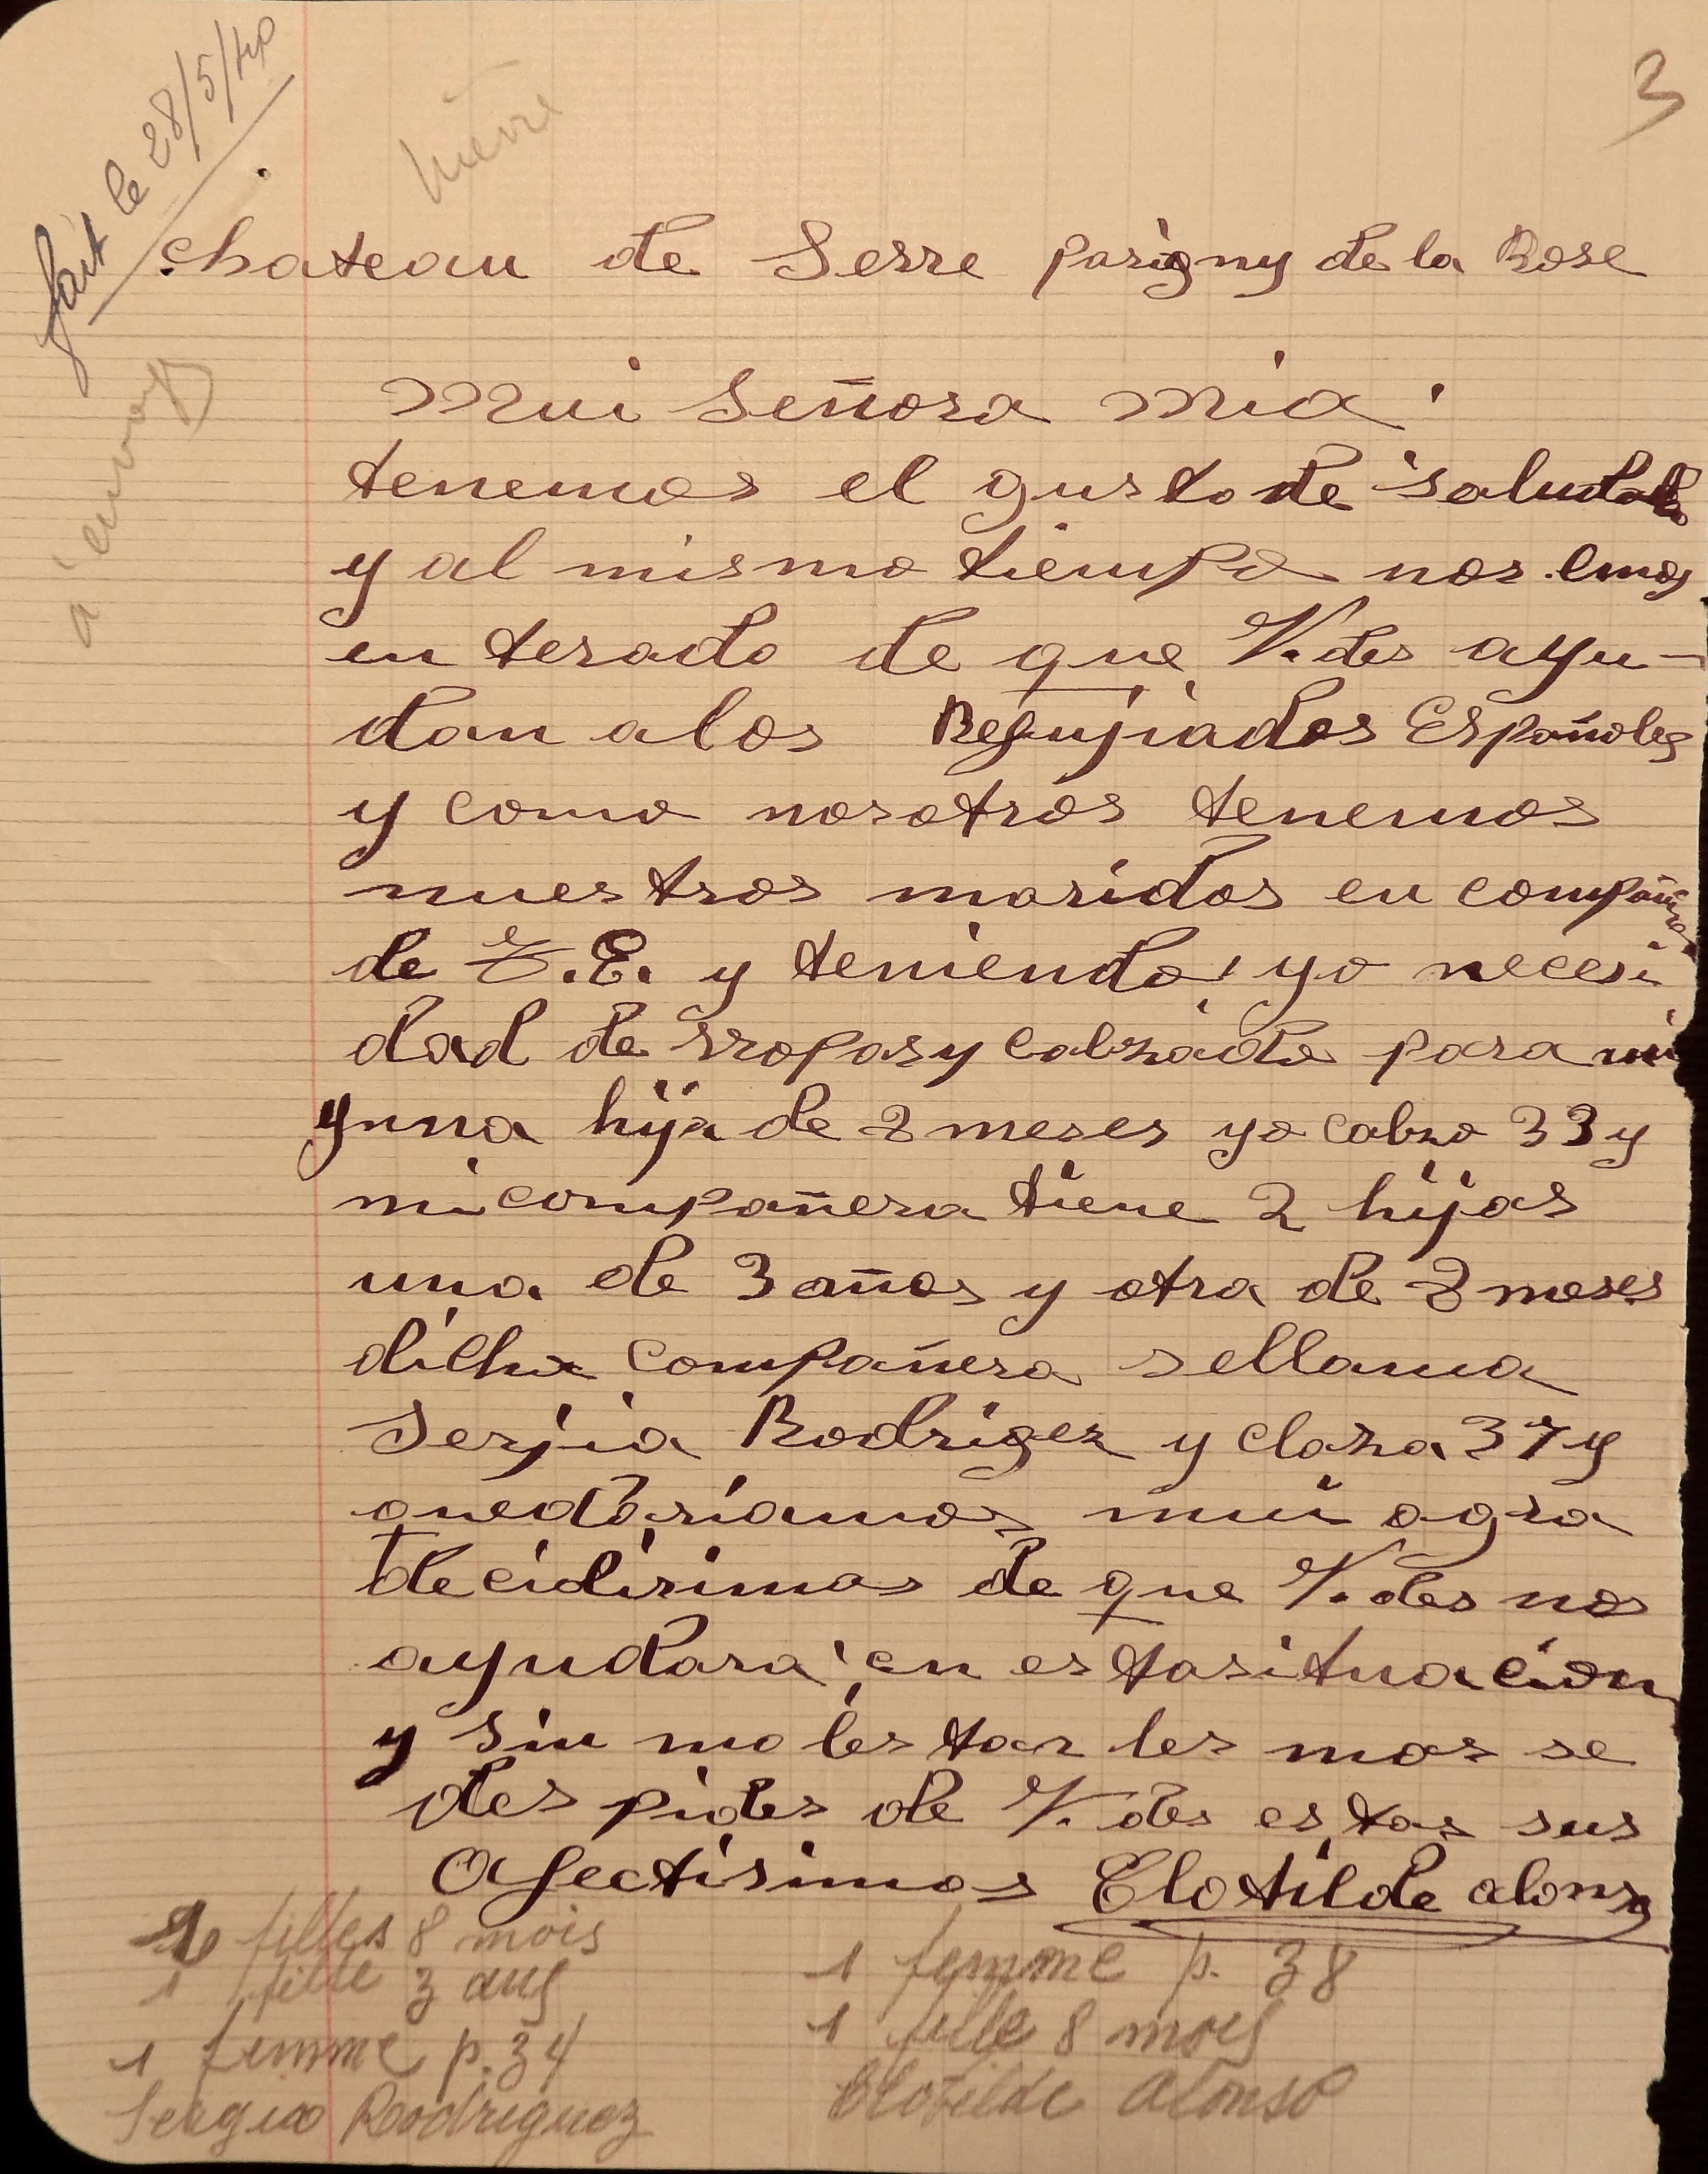 fait le 28/5/40
Nièvre
3
à envoyer
chateau de Serre parigny de la Rose
mui Señora mia
tenemos el gusto de saludarle
y al mismo tiempo nos emos
en terado de que V.des ayu-
dan a los Refujiados Españoles
y como nosotros tenemos
nuestros maridos en compañia
de T.E. y teniendo yo necesi
dad de rropas y calzado para mi
y una hija de 8 meses yo calzo 33 y
mi compañera tiene 2 hijas
una de 3 años y otra de 8 meses
dicha compañera sellama
Serjia Rodrigez y clasa 37 y
quedariamos mui agra
decidisimas de que V.des nos
ayudara en esta situacion
y sin molestarles mas se
des pides de V.des estas sus
afectisimas Clotilde alonso
filles 8 mois
1 fille 3 ans
1 femme p. 34
Sergia Rodriguez
1 femme p. 38
1 fille 8 mois
Clotilde Alonso